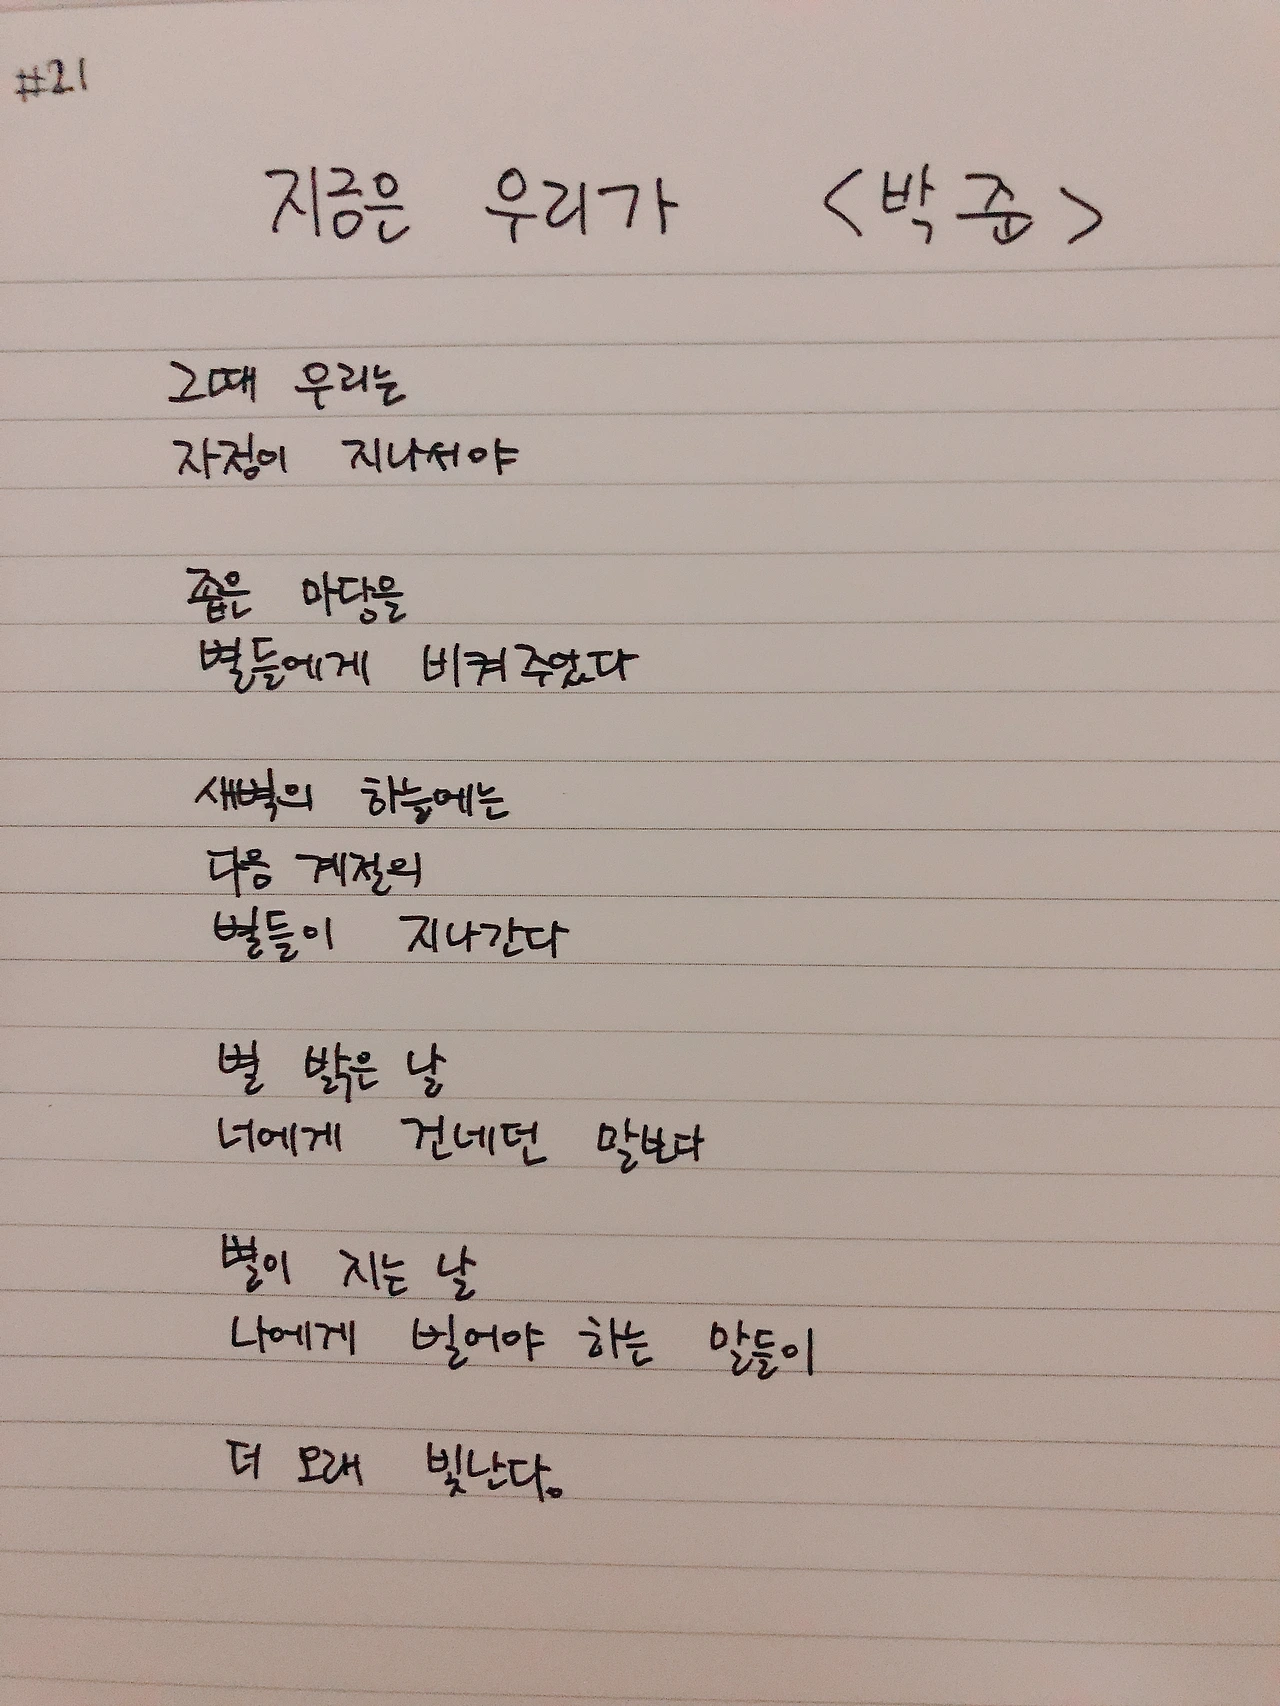 #21
지금은 우리가 <박준>
그때 우리는
자정이 지나서야
좁은 마당을
별들에게 비켜주었다
새벽의 하늘에는
다음 계절의
별들이 지나간다
별 밝은 날
너에게 건네던 말보다
별이 지는 날
나에게 빌어야 하는 말들이
더 오래 빛난다.